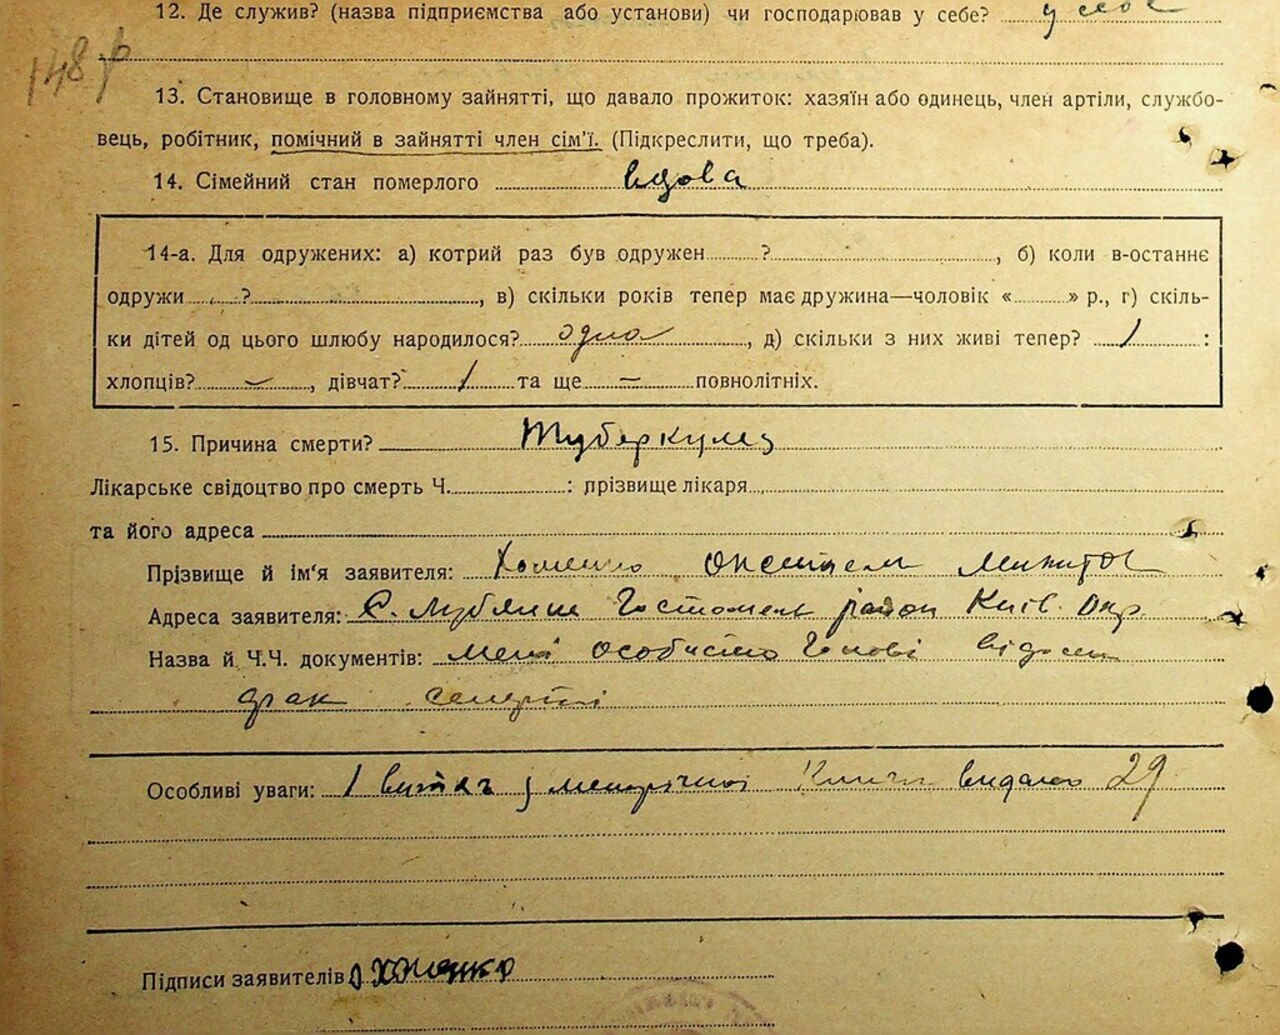 12. Де служив? (назва підприємства або установи) чи господарював у себе? у себе
148
13. Становище в головному зайнятті, що давало прожиток: хазяїн або одинець, член артіли, службо-
вець, робітник, помічний в зайнятті член сім'ї. (Підкреслити, що треба).
14. Сімейний стан померлого вдова
14-а. Для одружених: а) котрий раз був одружен ?, б) коли в-останнє
одружи ?, в) скільки років тепер має дружина—чоловік « » р., г) скіль-
ки дітей од цього шлюбу народилося? одна, д) скільки з них живі тепер? 1 :
хлопців? –, дівчат? 1 та ще – повнолітніх.
15. Причина смерти? Туберкульоз
Лікарське свідоцтво про смерть Ч. : прізвище лікаря
та його адреса
Прізвище й ім'я заявителя: Хоменко
Адреса заявителя: С. Лубянка Гостомель район Київ. Окр.
Назва й Ч.Ч. документів: мені особисто Голові відом
факт смерті
Особливі уваги: 1 витяг з Книги видано 29
Підписи заявителів О Хоменко